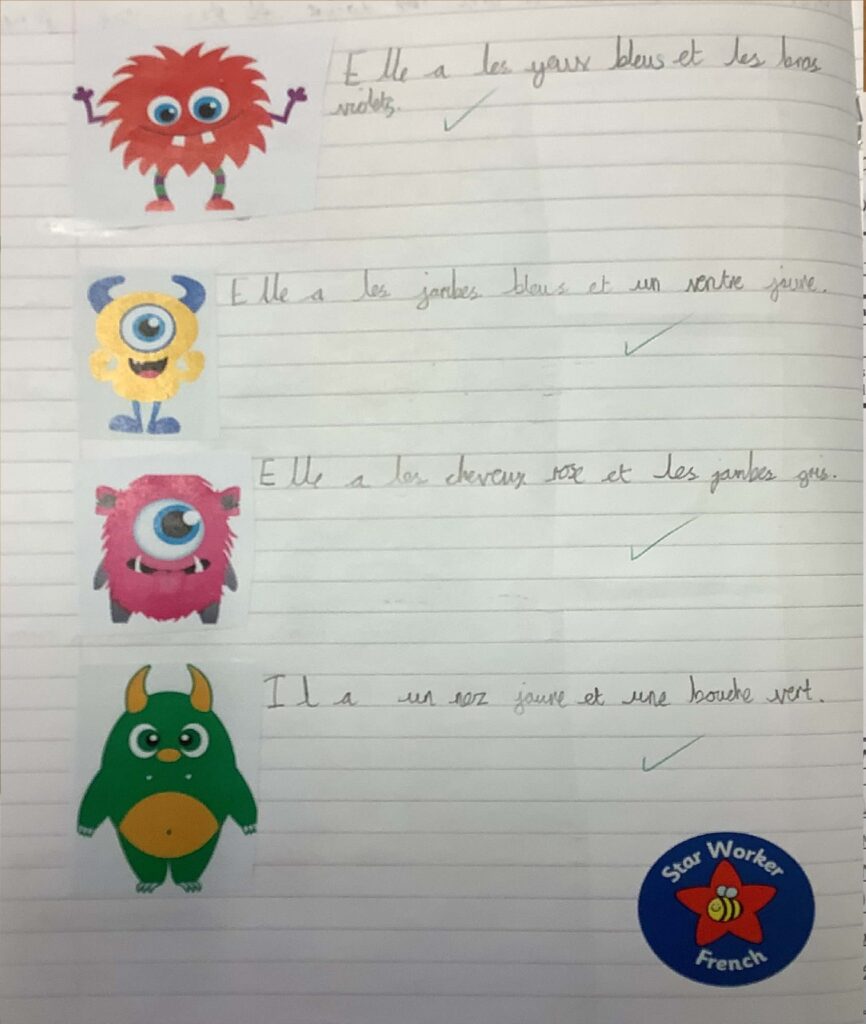 Elle a les yeux bleus et les bras
violets.
Elle a les jambes bleus et un ventre jaune.
Elle a les cheveux rose et les jambes gris.
Il a un nez jaune et une bouche vert.
Star Worker
French